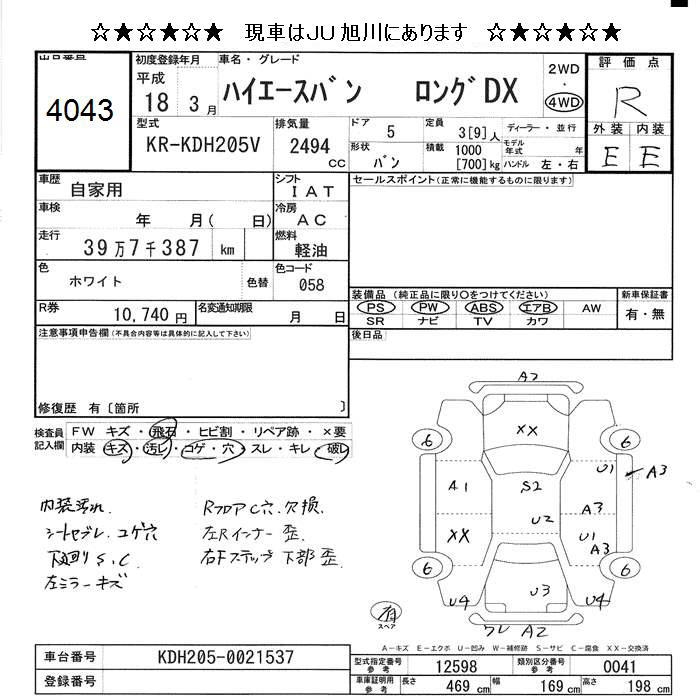 ☆★☆★☆ 現車はJU旭川にあります ☆★☆★☆
出品番号
4043
初度登録年月
平成
18 3月
車名・グレード
ハイエースバン ロングDX
2WD
・
4WD
評価点
R
外装 内装
E E
型式
KR-KDH205V
排気量
2494
cc
ドア
5
定員
3[9]人
ディーラー・並行
形状
バン
積載
1000
[700]kg
モデル年式 年
ハンドル 左・右
車歴
自家用
シフト
IAT
セールスポイント(正常に機能するものに限ります)
車検
年 月( 日)
冷房
AC
走行
39万7千387 km
燃料
軽油
色
ホワイト
色替
色コード
058
R券
10,740円
名変通知期限
月 日
装備品 (純正品に限り○をつけてください)
新車保証書
PS PW ABS エアB AW
有・無
SR ナビ TV カワ
注意事項申告欄(不具合内容等は具体的に記入して下さい)
後日品
修復歴 有〔箇所 〕
検査員記入欄
FW キズ・飛石・ヒビ割・リペア跡・×要
内装 キズ・汚レ・コゲ・穴・スレ・キレ・破レ
内装汚れ.
シートヤブレ.コゲ穴
下廻りS.C
左ミラーキズ
RフロアC穴.欠損.
左Rインナー歪.
右Fステップ下部歪.
A2
XX
6 6
U1
A3
A1
S2
A3
U2
XX
U1
A3
6 6
U3
U4 U4
ワレ A2
有
スペア
A－キズ E－エクボ U－凹み W－補修跡 S－サビ C－腐食 XX－交換済
車台番号
KDH205-0021537
登録番号
型式指定番号
参考
12598
類別区分番号
参考
0041
車庫証明用
参考
長さ
469 cm
幅
169 cm
高さ
198 cm